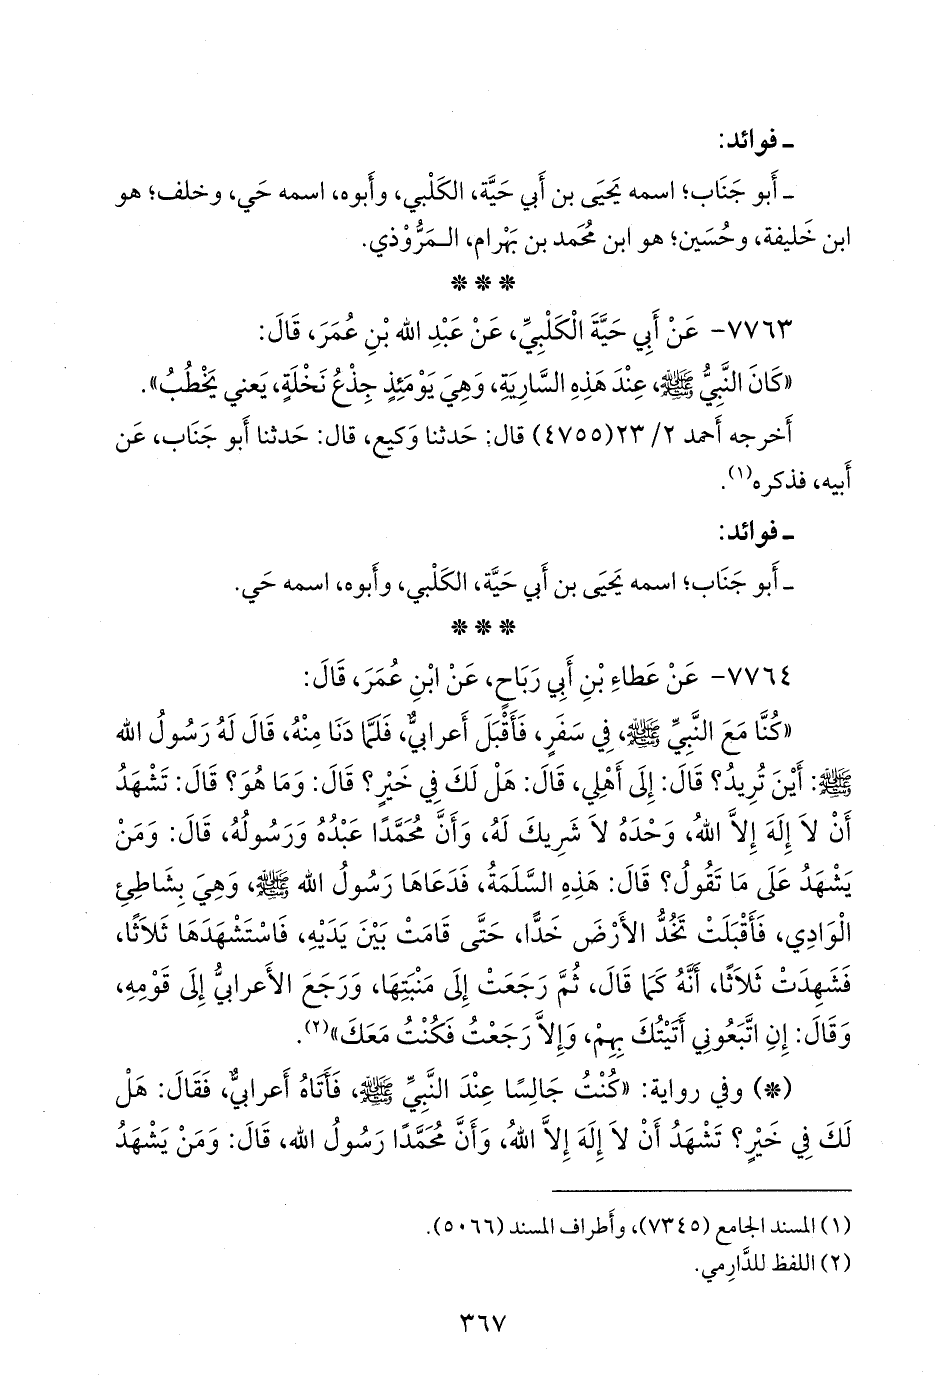 ـ فوائد:
ـ أَبو جَنَاب؛ اسمه يَحيَى بن أَبي حَيَّة، الكَلْبي، وأَبوه، اسمه حَي، وخلف؛ هو
ابن خَليفة، وحُسَين؛ هو ابن مُحَمد بن بَهْرام، الـمَرُّوْذي.
* * *
٧٧٦٣- عَنْ أَبِي حَيَّةَ الْكَلْبِيِّ، عَنْ عَبْدِ الله بْنِ عُمَرَ، قَالَ:
«كَانَ النَّبِيُّ ﷺ، عِنْدَ هَذِهِ السَّارِيَةِ، وَهِيَ يَوْمَئِذٍ جِذْعُ نَخْلَةٍ، يَعني يَخْطُبُ».
أَخرجه أَحمد ٢/ ٢٣(٤٧٥٥) قال: حَدثنا وَكيع، قال: حَدثنا أَبو جَنَاب، عَن
أَبيه، فذكره(١).
ـ فوائد:
ـ أَبو جَنَاب؛ اسمه يَحيَى بن أَبي حَيَّة، الكَلْبي، وأَبوه، اسمه حَي.
* * *
٧٧٦٤- عَنْ عَطاءِ بْنِ أَبِي رَبَاحٍ، عَنْ ابْنِ عُمَرَ، قَالَ:
«كُنَّا مَعَ النَّبِيِّ ﷺ، فِي سَفَرٍ، فَأَقْبَلَ أَعرابيٌّ، فَلَمَّا دَنَا مِنْهُ، قَالَ لَهُ رَسُولُ الله
ﷺ: أَيْنَ تُرِيدُ؟ قَالَ: إِلَى أَهْلِي، قَالَ: هَلْ لَكَ فِي خَيْرٍ؟ قَالَ: وَمَا هُوَ؟ قَالَ: تَشْهَدُ
أَنْ لاَ إِلَهَ إِلاَّ اللهُ، وَحْدَهُ لاَ شَرِيكَ لَهُ، وَأَنَّ مُحَمَّدًا عَبْدُهُ وَرَسُولُهُ، قَالَ: وَمَنْ
يَشْهَدُ عَلَى مَا تَقُولُ؟ قَالَ: هَذِهِ السَّلَمَةُ، فَدَعَاهَا رَسُولُ الله ﷺ، وَهِيَ بِشَاطِئِ
الْوَادِي، فَأَقْبَلَتْ تَخُدُّ الأَرْضَ خَدًّا، حَتَّى قَامَتْ بَيْنَ يَدَيْهِ، فَاسْتَشْهَدَهَا ثَلاَثًا،
فَشَهِدَتْ ثَلاَثًا، أَنَّهُ كَمَا قَالَ، ثُمَّ رَجَعَتْ إِلَى مَنْبَتِهَا، وَرَجَعَ الأَعرابيُّ إِلَى قَوْمِهِ،
وَقَالَ: إِنِ اتَّبَعُونِي أَتَيْتُكَ بِهِمْ، وَإِلاَّ رَجَعْتُ فَكُنْتُ مَعَكَ»(٢).
(*) وفي رواية: «كُنْتُ جَالِسًا عِنْدَ النَّبِيِّ ﷺ، فَأَتَاهُ أَعرابيٌّ، فَقَالَ: هَلْ
لَكَ فِي خَيْرٍ؟ تَشْهَدُ أَنْ لاَ إِلَهَ إِلاَّ اللهُ، وَأَنَّ مُحَمَّدًا رَسُولُ الله، قَالَ: وَمَنْ يَشْهَدُ
(١) المسند الجامع (٧٣٤٥)، وأَطراف المسند (٥٠٦٦).
(٢) اللفظ للدَّارِمي.
٣٦٧